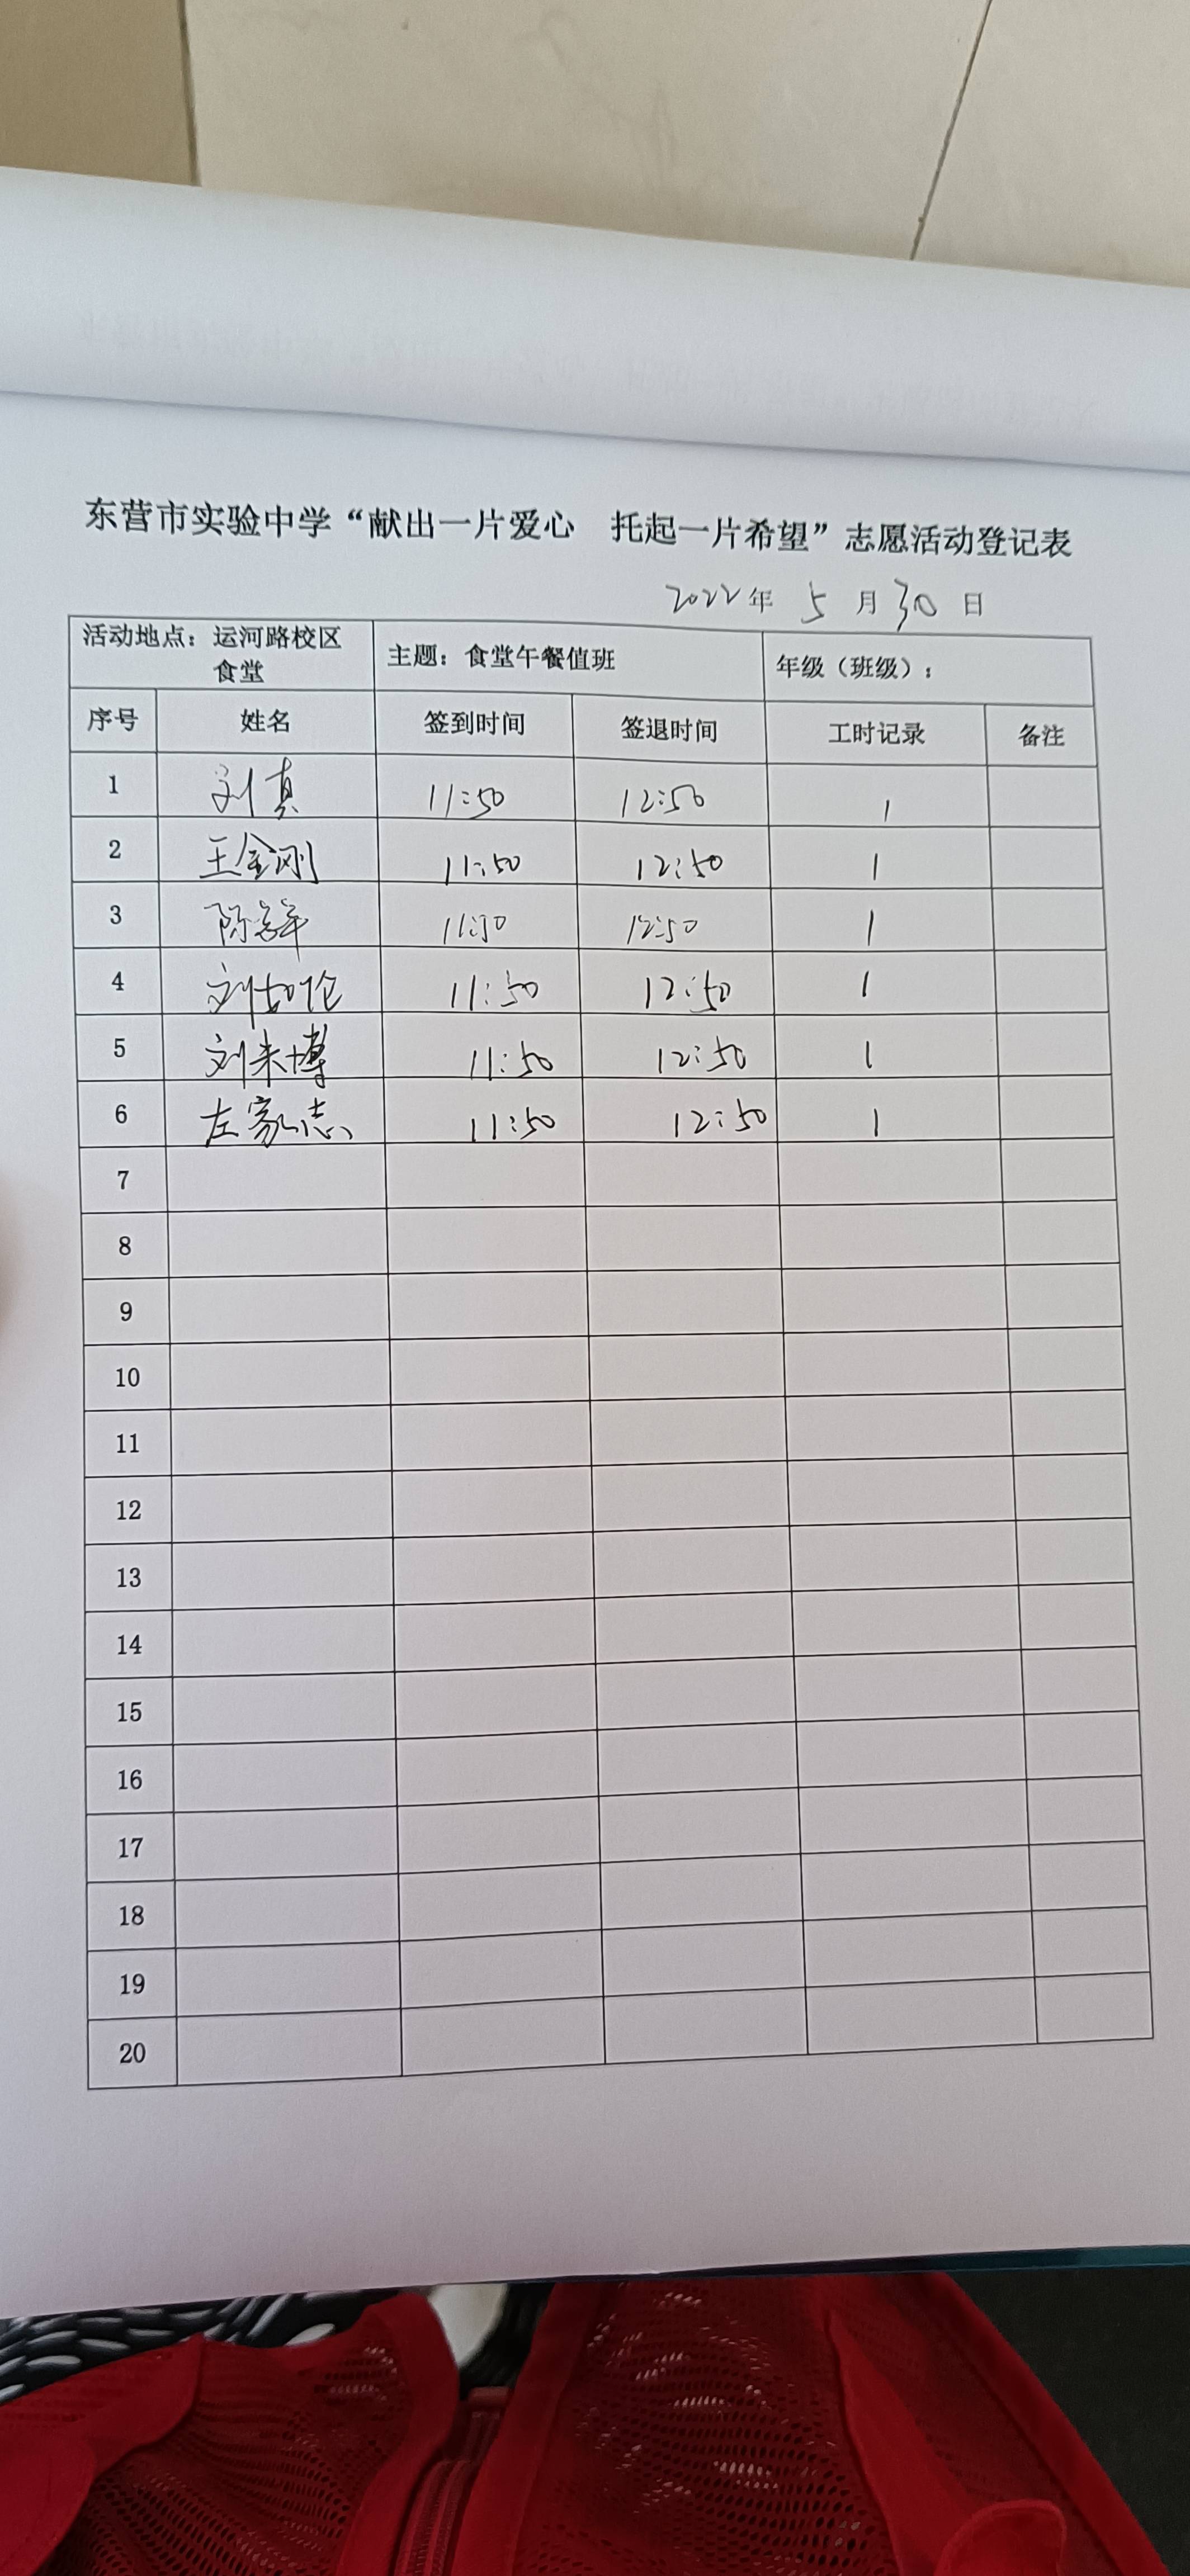 东营市实验中学“献出一片爱心 托起一片希望”志愿活动登记表
2022年 5 月 30 日
活动地点：运河路校区食堂 主题：食堂午餐值班 年级（班级）：
序号 姓名 签到时间 签退时间 工时记录 备注
1 刘真 11:50 12:50 1
2 王金刚 11:50 12:50 1
3 陈 11:50 12:50 1
4 刘如伦 11:50 12:50 1
5 刘来博 11:50 12:50 1
6 左家志 11:50 12:50 1
7
8
9
10
11
12
13
14
15
16
17
18
19
20